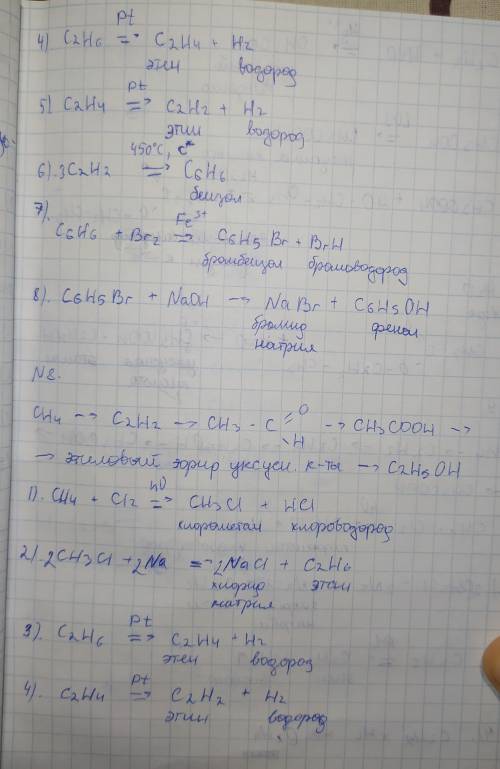 Pt
4) C2H6 => C2H4 + H2
этен водород
Pt
5) C2H4 => C2H2 + H2
этин водород
450°C, C*
6). 3C2H2 => C6H6
бензол
7). Fe3+
C6H6 + Br2 => C6H5Br + BrH
бромбензол бромоводород
8). C6H5Br + NaOH -> NaBr + C6H5OH
бромид фенол
натрия
N8.
CH4 -> C2H2 -> CH3 - C =O -> CH3COOH ->
\ H
-> этиловый эфир уксусн. к-ты -> C2H5OH
hυ
1). CH4 + Cl2 => CH3Cl + HCl
хлорметан хлороводород
2). 2CH3Cl + 2Na => 2NaCl + C2H6
хлорид этан
натрия
Pt
3). C2H6 => C2H4 + H2
этен водород
Pt
4). C2H4 => C2H2 + H2
этин водород